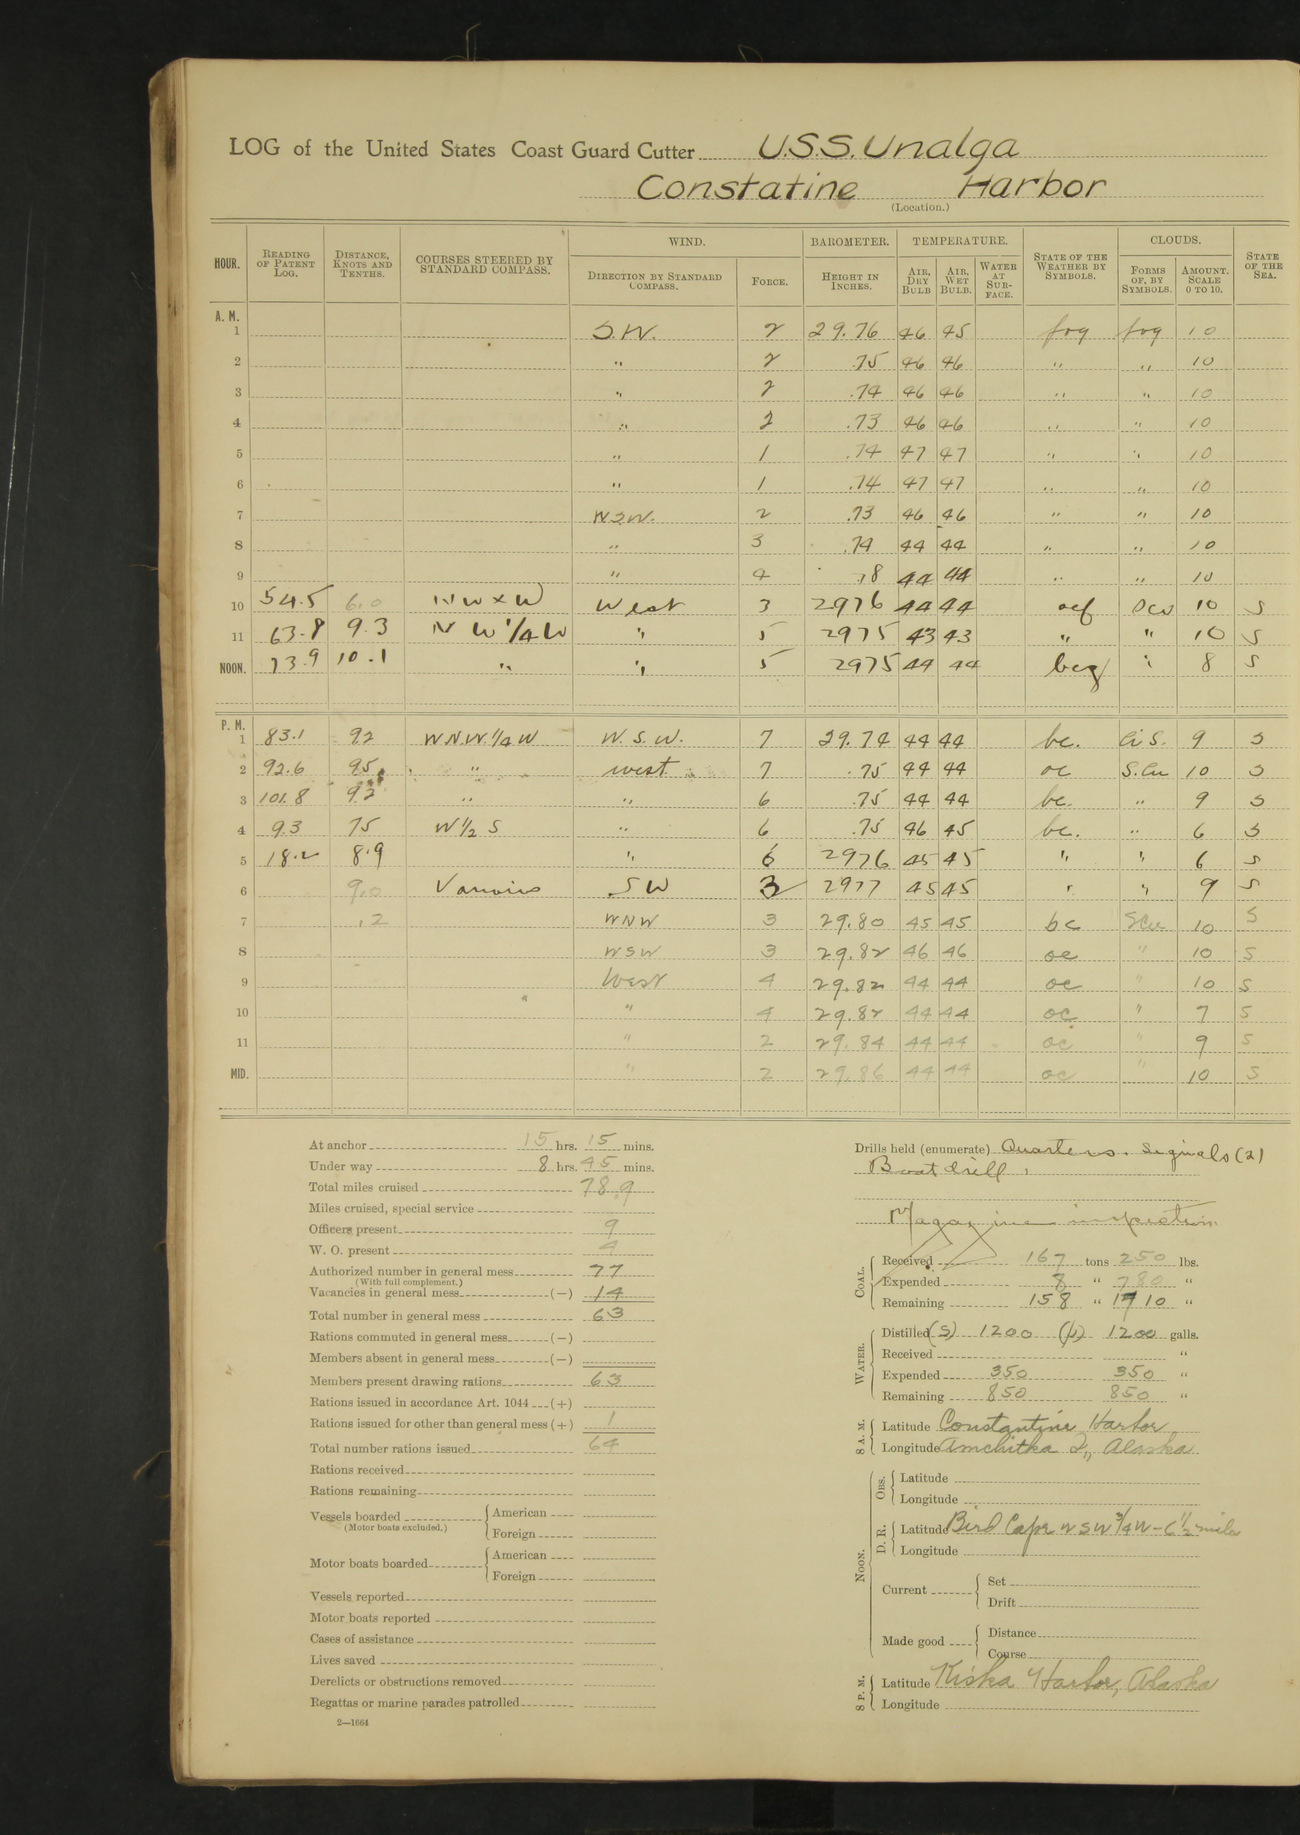 LOG of the United States Coast Guard Cutter U.S.S. Unalga
Constatine Harbor
(Location.)
HOUR. READING OF PATENT LOG. DISTANCE, KNOTS AND TENTHS. COURSES STEERED BY STANDARD COMPASS. WIND. DIRECTION BY STANDARD COMPASS. FORCE. BAROMETER. HEIGHT IN INCHES. TEMPERATURE. AIR, DRY BULB AIR, WET BULB. WATER AT SURFACE. STATE OF THE WEATHER BY SYMBOLS. CLOUDS. FORMS OF, BY SYMBOLS. AMOUNT. SCALE 0 TO 10. STATE OF THE SEA.
A. M.
1 S.W. 2 29.76 46 45 fog fog 10
2 " 2 .75 46 46 " " 10
3 " 2 .74 46 46 " " 10
4 " 2 .73 46 46 " " 10
5 " 1 .74 47 47 " " 10
6 " 1 .74 47 47 " " 10
7 W.S.W. 2 .73 46 46 " " 10
8 " 3 .74 44 44 " " 10
9 " 4 .18 44 44 " " 10
10 54.5 6.0 NW x W West 3 2976 44 44 ocf 10 S
11 63.8 9.3 N W 1/4 W " 5 2975 43 43 " " 10 S
NOON. 73.9 10.1 " " 5 2975 44 44 bcg " 8 S
P. M.
1 83.1 92 W.N.W. 1/4 W W. S. W. 7 29.74 44 44 bc. Ci S. 9 S
2 92.6 95 " west 7 .75 44 44 oc S.Cu 10 S
3 101.8 92 " " 6 .75 44 44 bc. " 9 S
4 9.3 75 W 1/2 S " 6 .75 46 45 bc. " 6 S
5 18.2 8.9 " 6 2976 45 45 " " 6 S
6 9.0 Various SW 3 2977 45 45 " " 9 S
7 .2 WNW 3 29.80 45 45 bc SCu 10 S
8 WSW 3 29.82 46 46 oc " 10 S
9 West 4 29.82 44 44 oc " 10 S
10 " 4 29.82 44 44 oc " 7 S
11 " 2 29.84 44 44 oc " 9 S
MID. " 2 29.86 44 44 oc " 10 S
At anchor 15 hrs. 15 mins.
Under way 8 hrs. 45 mins.
Total miles cruised 78.9
Miles cruised, special service
Officers present 9
W. O. present 4
Authorized number in general mess 77
(With full complement.)
Vacancies in general mess (—) 14
Total number in general mess 63
Rations commuted in general mess (—)
Members absent in general mess (—)
Members present drawing rations 63
Rations issued in accordance Art. 1044 (+)
Rations issued for other than general mess (+) 1
Total number rations issued 64
Rations received
Rations remaining
Vessels boarded American
(Motor boats excluded.)
Foreign
Motor boats boarded American
Foreign
Vessels reported
Motor boats reported
Cases of assistance
Lives saved
Derelicts or obstructions removed
Regattas or marine parades patrolled
2—1664
Drills held (enumerate) Quarters. Signals (2)
Boat drill,
Magazine inspection
COAL.
Received 167 tons 250 lbs.
Expended 8 " 780 "
Remaining 158 " 1710 "
WATER.
Distilled (S) 1200 (b) 1200 galls.
Received "
Expended 350 350 "
Remaining 850 850 "
8 A. M.
Latitude Constantine Harbor
Longitude Amchitka I., Alaska
NOON.
OBS.
Latitude
Longitude
D. R.
Latitude Bird Cape W S W 3/4 W - 6 1/2 mile
Longitude
Current Set
Drift
Made good Distance
Course
8 P. M.
Latitude Kiska Harbor, Alaska
Longitude